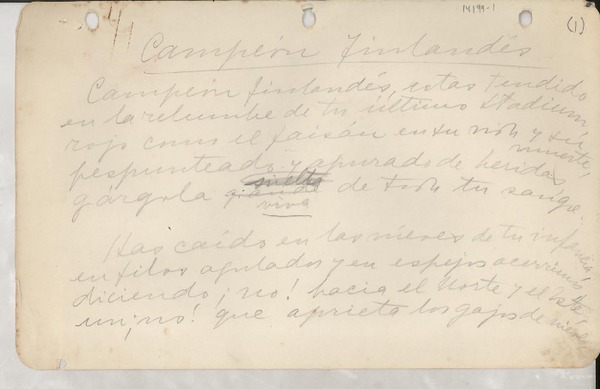 14199-1
(1)
Campeón finlandés
Campeón finlandés, estas tendido
en la relumbre de tu último Stadium,
rojo como el faisán en su vida y su
muerte,
pespunteado y apurado de heridas
gárgola viva de toda tu sangre.
suelta
Has caído en las nieves de tu infancia,
en filos azulados y en espejos acerrimos
diciendo ¡no! hacia el Norte y el Este,
un ¡no! que aprieta los gajos de nieve